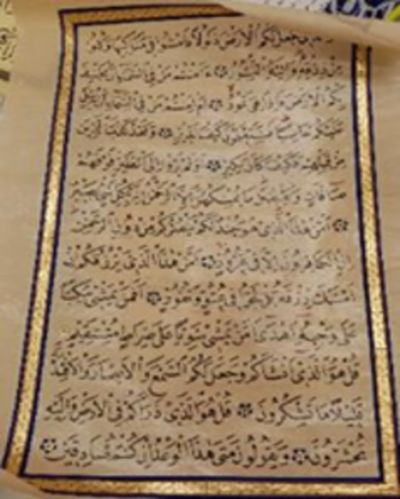 جَعَلَ لَكُمُ الْأَرْضَ ذَلُولًا فَامْشُوا فِي مَنَاكِبِهَا وَكُلُوا
مِنْ رِزْقِهِ وَإِلَيْهِ النُّشُورُ ۝ ءَأَمِنْتُمْ مَنْ فِي السَّمَاءِ أَنْ يَخْسِفَ
بِكُمُ الْأَرْضَ فَإِذَا هِيَ تَمُورُ ۝ أَمْ أَمِنْتُمْ مَنْ فِي السَّمَاءِ أَنْ يُرْسِلَ
عَلَيْكُمْ حَاصِبًا فَسَتَعْلَمُونَ كَيْفَ نَذِيرِ ۝ وَلَقَدْ كَذَّبَ الَّذِينَ
مِنْ قَبْلِهِمْ فَكَيْفَ كَانَ نَكِيرِ ۝ أَوَلَمْ يَرَوْا إِلَى الطَّيْرِ فَوْقَهُمْ
صَافَّاتٍ وَيَقْبِضْنَ مَا يُمْسِكُهُنَّ إِلَّا الرَّحْمٰنُ إِنَّهُ بِكُلِّ شَيْءٍ بَصِيرٌ
۝ أَمَّنْ هٰذَا الَّذِي هُوَ جُنْدٌ لَكُمْ يَنْصُرُكُمْ مِنْ دُونِ الرَّحْمٰنِ
إِنِ الْكَافِرُونَ إِلَّا فِي غُرُورٍ ۝ أَمَّنْ هٰذَا الَّذِي يَرْزُقُكُمْ إِنْ
أَمْسَكَ رِزْقَهُ بَلْ لَجُّوا فِي عُتُوٍّ وَنُفُورٍ ۝ أَفَمَنْ يَمْشِي مُكِبًّا
عَلَى وَجْهِهِ أَهْدَى أَمَّنْ يَمْشِي سَوِيًّا عَلَى صِرَاطٍ مُسْتَقِيمٍ
قُلْ هُوَ الَّذِي أَنْشَأَكُمْ وَجَعَلَ لَكُمُ السَّمْعَ وَالْأَبْصَارَ وَالْأَفْئِدَةَ
قَلِيلًا مَا تَشْكُرُونَ ۝ قُلْ هُوَ الَّذِي ذَرَأَكُمْ فِي الْأَرْضِ وَإِلَيْهِ
تُحْشَرُونَ ۝ وَيَقُولُونَ مَتَى هٰذَا الْوَعْدُ إِنْ كُنْتُمْ صَادِقِينَ ۝